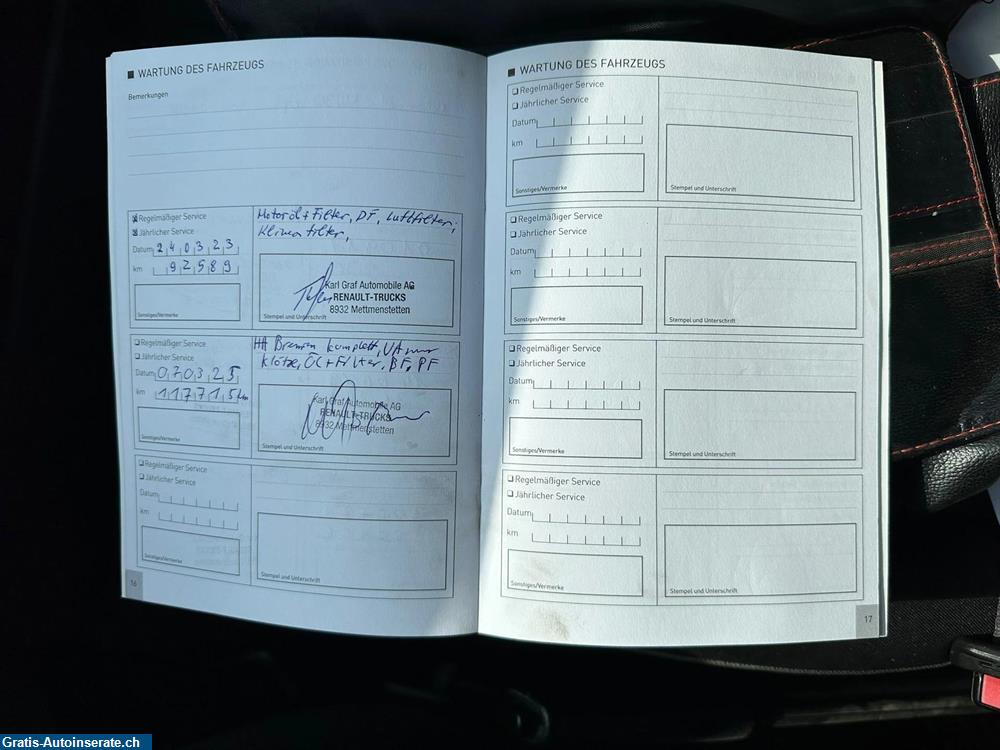 WARTUNG DES FAHRZEUGS
Bemerkungen
Regelmäßiger Service
Jährlicher Service
Datum 240323
km 92589
Sonstiges/Vermerke
Motoröl + Filter, DF, Luftfilter,
Klima filter,
Karl Graf Automobile AG
RENAULT-TRUCKS
8932 Mettmenstetten
Stempel und Unterschrift
Regelmäßiger Service
Jährlicher Service
Datum 070325
km 117715 km
Sonstiges/Vermerke
HA Bremsen komplett, VA nur
Klötze, Öl + Filter, BF, PF
Karl Graf Automobile AG
RENAULT-TRUCKS
8932 Mettmenstetten
Stempel und Unterschrift
Regelmäßiger Service
Jährlicher Service
Datum
km
Sonstiges/Vermerke
Stempel und Unterschrift
16
WARTUNG DES FAHRZEUGS
Regelmäßiger Service
Jährlicher Service
Datum
km
Sonstiges/Vermerke
Stempel und Unterschrift
Regelmäßiger Service
Jährlicher Service
Datum
km
Sonstiges/Vermerke
Stempel und Unterschrift
Regelmäßiger Service
Jährlicher Service
Datum
km
Sonstiges/Vermerke
Stempel und Unterschrift
Regelmäßiger Service
Jährlicher Service
Datum
km
Sonstiges/Vermerke
Stempel und Unterschrift
17
Gratis-Autoinserate.ch